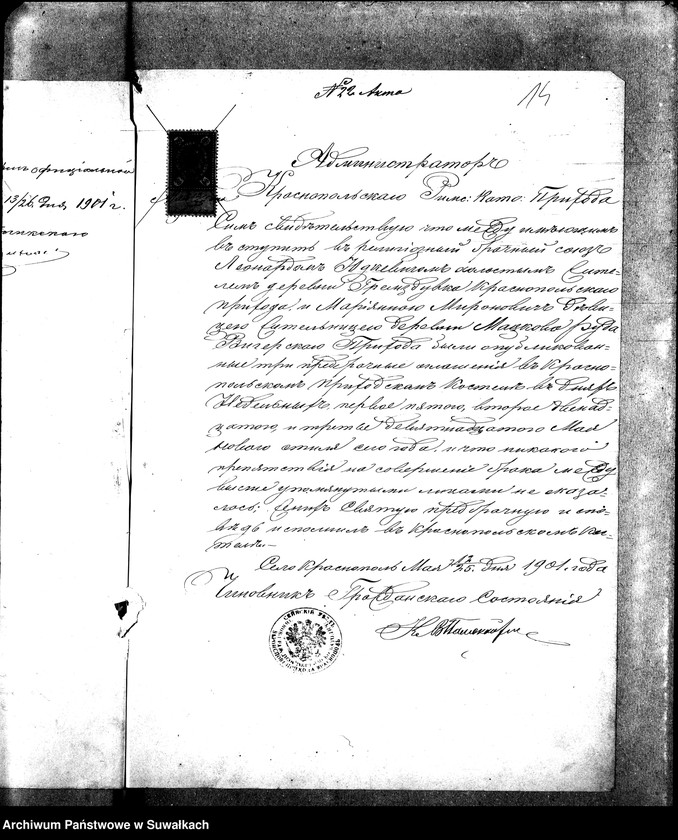 № 22 Акта
14
13/26. дня 1901 г.
Администраторъ
Краснопольскаго Римс: Като: Прихода
Симъ свидѣтельствую что между имѣющимъ
вступить въ религіозный брачный союзъ
Леонардомъ холостымъ жите-
лемъ деревни Краснопольскаго
прихода и Маріянною Мироновичъ дѣви-
цею жительницею деревни Мацкова Руда
Прихода были опубликован-
ные три предбрачные оглашенія въ Красно-
польскомъ приходскомъ костелѣ въ дняхъ
Недѣльныхъ, первое пятого, второе двенад-
цатого, и третье девятнадцатого Мая
новаго стиля сего года, и что никакого
препятствія на совершеніе брака между
выше упомянутыми лицами не оказа-
лось; Святую предбрачную испо-
вѣдь исполнилъ въ Краснопольскомъ ко-
стелѣ.-
Село Краснополь Мая 12/25. дня 1901. года
Чиновникъ Гражданскаго Состоянія
Archiwum Państwowe w Suwałkach